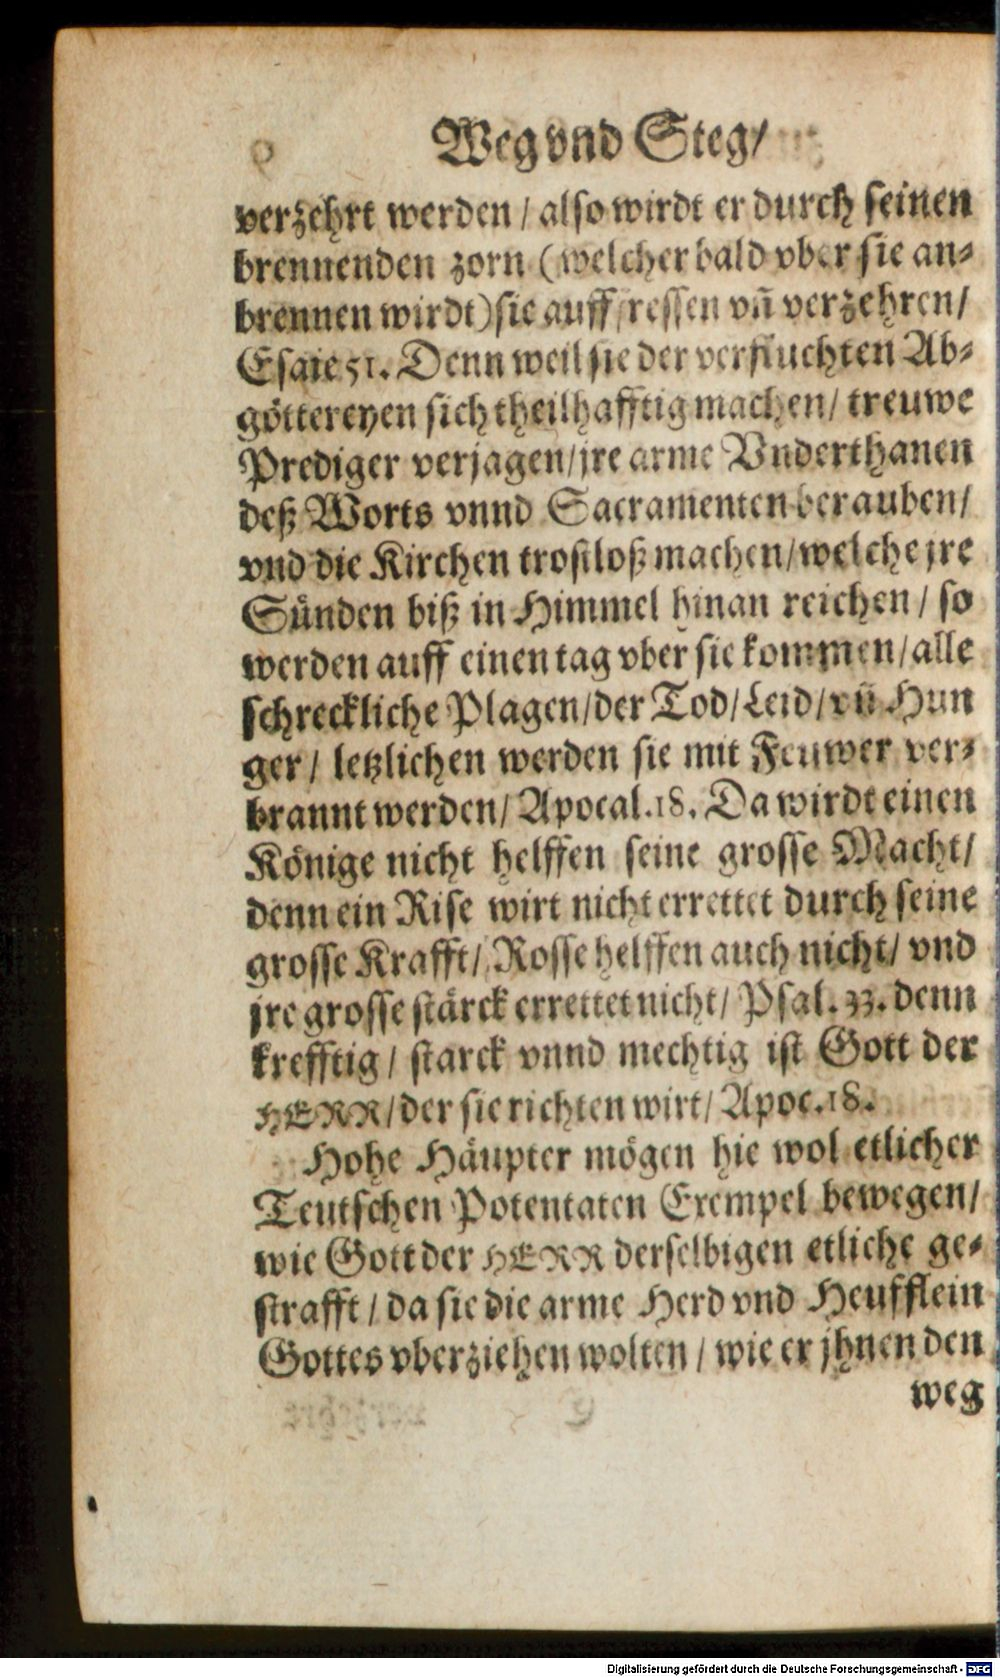 Weg vnd Steg/
verzehrt werden / also wirdt er durch seinen
brennenden zorn (welcher bald vber sie an-
brennen wirdt) sie auff fressen vñ verzehren/
Esaie 51. Denn weil sie der verfluchten Ab-
göttereyen sich theilhafftig machen/ treuwe
Prediger verjagen/ jre arme Vnderthanen
deß Worts vnnd Sacramenten berauben/
vnd die Kirchen trostloß machen/ welche jre
Sünden biß in Himmel hinan reichen / so
werden auff einen tag vber sie kommen/ alle
schreckliche Plagen/ der Tod/ Leid/ vñ Hun
ger / letzlichen werden sie mit Feuwer ver-
brannt werden/ Apocal. 18. Da wirdt einen
Könige nicht helffen seine grosse Macht/
denn ein Rise wirt nicht errettet durch seine
grosse Krafft/ Rosse helffen auch nicht/ vnd
jre grosse stärck errettet nicht/ Psal. 33. denn
krefftig / starck vnnd mechtig ist Gott der
HERR/ der sie richten wirt/ Apoc. 18.
Hohe Häupter mögen hie wol etlicher
Teutschen Potentaten Exempel bewegen/
wie Gott der HERR derselbigen etliche ge-
strafft / da sie die arme Herd vnd Heufflein
Gottes vberziehen wolten / wie er jhnen den
weg
Digitalisierung gefördert durch die Deutsche Forschungsgemeinschaft - DFG